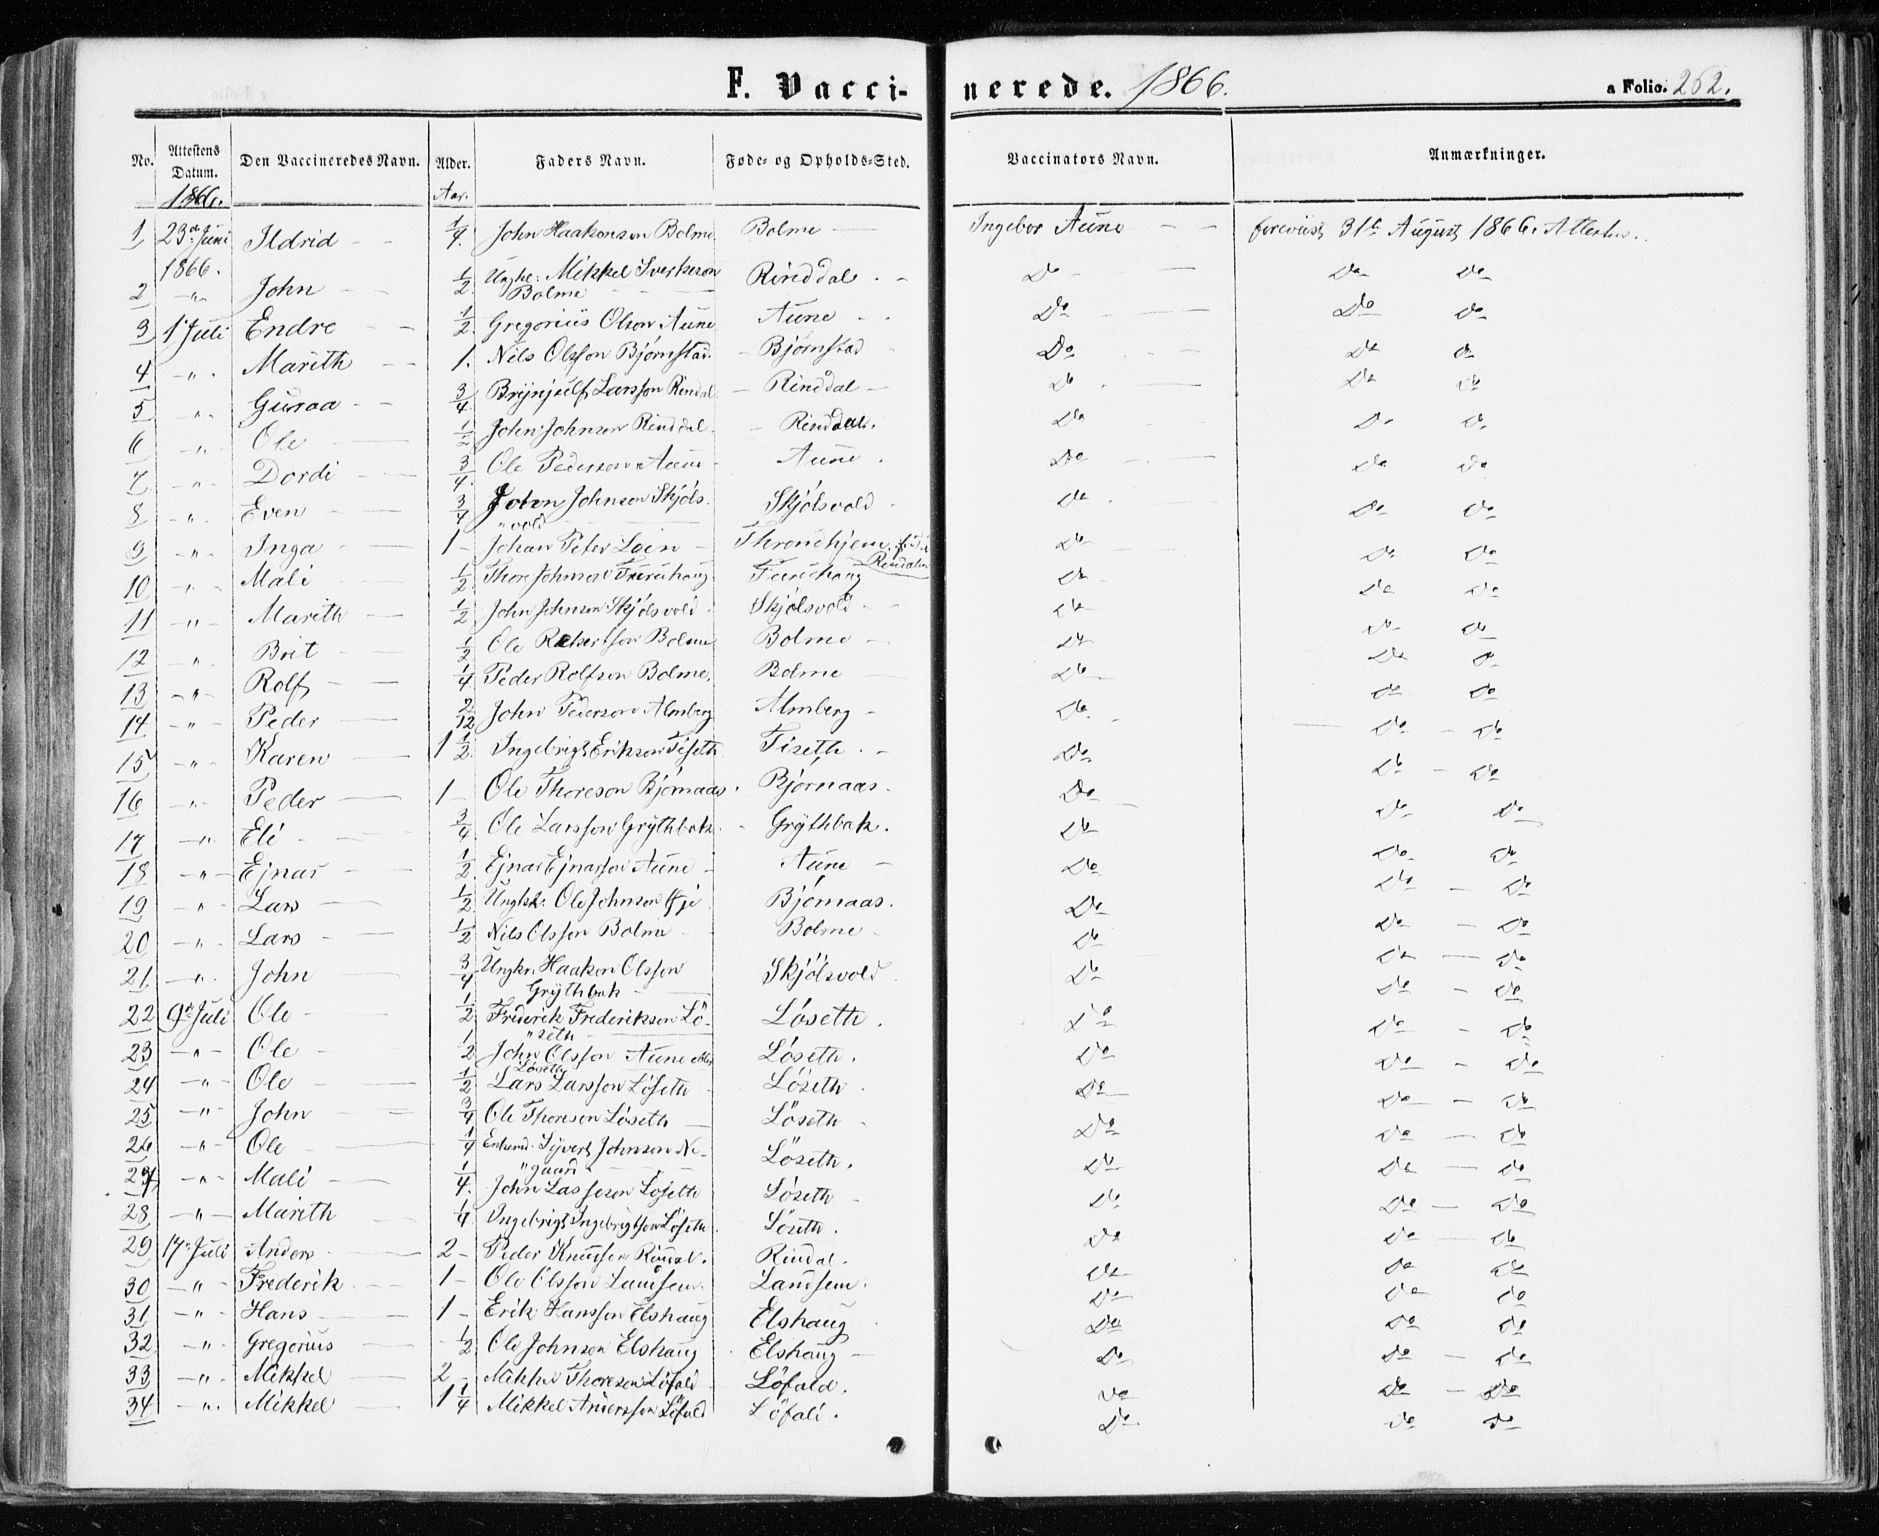 F. Vacci-nerede. 1866. a Folio. 262.
No. Attestens Datum. Den Vaccineredes Navn. Alder. Faders Navn. Føde- og Opholds-Sted. Vaccinators Navn. Anmærkninger.
1866. Aar.
1 23de Juni 1866. Ildrid 1/4 John Haakonson Bolme Bolme Ingebor Aune forevist 31te August 1866.
2 " John 1/2 Ungk: Mikkel Sverkeson Bolme Rinddal Do Do Do
3 1 Juli Endre 1/2 Gregorius Olson Aune Aune Do Do Do
4 " Marith 1. Nils Olsson Bjørnstad. Bjørnstad Do Do Do
5 " Guroa 3/4 Brynjulf Larsson Rindal Rinddal Do Do Do
6 " Ole 1/2 John Johnson Rinddal. Rinddal. Do Do Do
7 " Dordi 3/4 Ole Pederson Aune Aune. Do Do Do
8 " Even 3/4 John Johnson Skjøls-"vold Skjølsvold Do Do Do
9 " Inga 1 Johan Peter Lein Thronhjem, f. i Rindalen Do Do Do
10 " Mali 1/2 Thore Johnson Furuhaug Furuhaug Do Do Do
11 " Marith 1/2 John Johnson Skjølsvold Skjølsvold Do Do Do
12 " Brit 1/2 Ole Bolme Bolme Do Do Do
13 " Rolf 1/4 Peder Rolfson Bolme. Bolme Do Do Do
14 " Peder 2/12 John Pederson Almberg Almberg Do Do Do
15 " Karen 1 1/2 Ingebrigt Erikson Tiseth Tiseth Do Do Do
16 " Peder 1 Ole Thoreson Bjørnaas. Bjørnaas. Do Do Do
17 " Eli 3/4 Ole Larsson Grythbak. Grythbak. Do Do Do
18 " Ejnar 1/2 Ejnar Ejnarson Aune Aune Do Do Do
19 " Lars 1/2 Ungk: Ole Johnson Bjørnaas. Do Do Do
20 " Lars 1/2 Nils Olsson Bolme Bolme Do Do Do
21 " John 3/4 Ungkr. Haakon Olsson Grythbak Skjølsvold Do Do Do
22 9de Juli Ole 1/2 Frederik Frederikson Lö-"seth Löseth. Do Do Do
23 " Ole 1/2 John Olsson Aune eller Løseth Løseth. Do Do Do
24 " Ole 1/2 Lars Larsson Løseth Løseth. Do Do Do
25 " John 3/4 Ole Thoreson Løseth Löseth Do Do Do
26 " Ole 1/4 Enkemd. Syvert Johnson Ne-"gaard Löseth. Do Do Do
27 " Mali 1/4. John Lasseson Løseth Löseth Do Do Do
28 " Marith 1/4 Ingebrigt Ingebrigtson Løseth Løseth. Do Do Do
29 17 Juli Anders 2 Peder Knudsen Rindal. Rindal. Do Do Do
30 " Frederik 1 Ole Olsson Landsem. Landsem. Do Do Do
31 " Hans 1 Erik Hansson Elshaug Elshaug Do Do Do
32 " Gregorius 1/2 Ole Johnson Elshaug Elshaug Do Do Do
33 " Mikkel 2 Mikkel Thoreson Løfald Löfald. Do Do Do
34 " Mikkel 1 1/4 Mikkel Andersson Løfald Löfald. Do Do Do